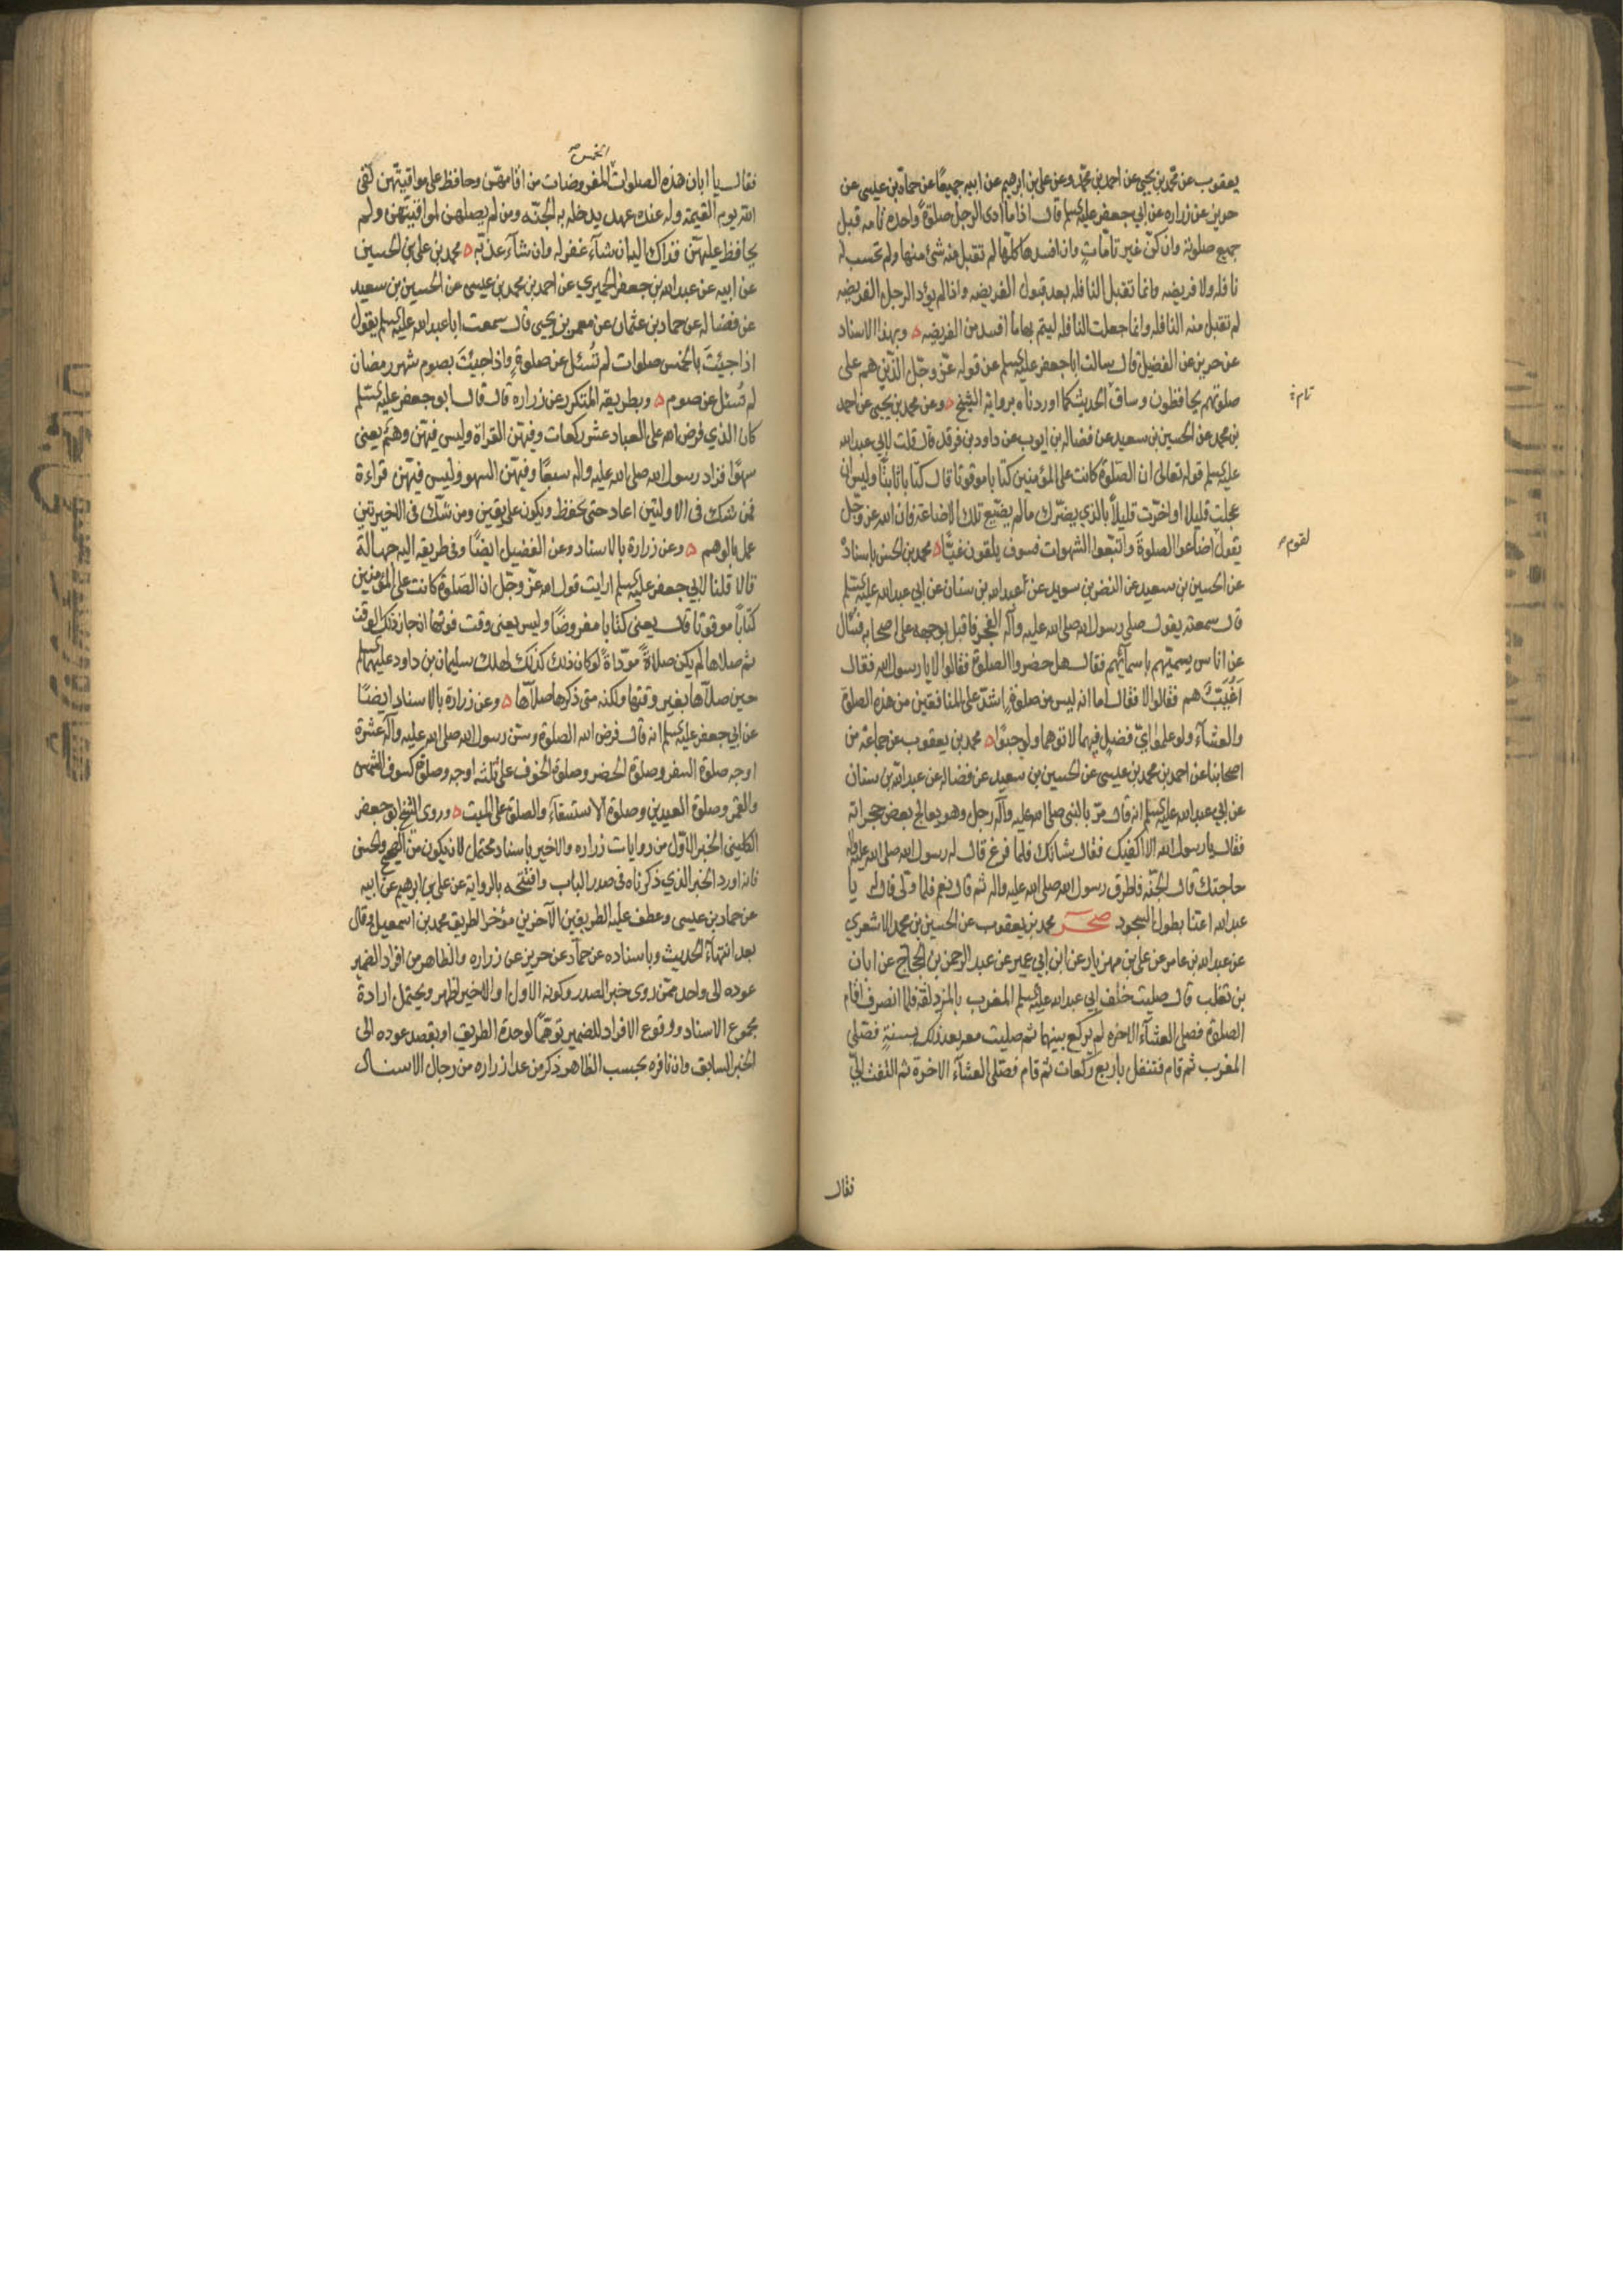 يعقوب عن محمد بن يحيى عن احمد بن محمد وعن علي بن ابرهيم عن ابيه جميعًا عن حماد بن عيسى عن
حريز عن زراره عن ابي جعفر عليه السلم قال اذا ما ادى الرجل صلوةً واحدة تامه قبل
جميع صلوته وان كنّ غير تامّاتٍ وان افسدها كلّها لم تقبل منه شئ منها ولم تحسب له
نافله ولا فريضه وانما تقبل النافله بعد قبول الفريضه واذا لم يؤد الرجل الفريضه
لم تقبل منه النافله وانما جعلت النافله ليتم بها ما افسد من الفريضه ٥ وبهذا الاسناد
عن حريز عن الفضيل قال سالت ابا جعفر عليه السلم عن قوله عزّ وجّل الذين هم على
صلوتهم يحافظون وساق الحديث كما اوردناه برواية الشيخ ٥ وعن محمد بن يحيى عن احمد
تامة
بن محمد عن الحسين بن سعيد عن فضاله بن ايوب عن داود بن فرقد قال قلت لابي عبد الله
عليه السلم قوله تعالى ان الصلوة كانت على المؤمنين كتابا موقوتا قال كتابا ثابتًا وليس ان
عجلت قليلا او اخّرت قليلاً بالذي يضّرك ما لم يضّيع تلك الاضاعة فان الله عز وجّل
يقول اضاعوا الصلوة واتبّعوا الشهوات فسوف يلقون غيًّا ٥ محمد بن الحسن باسناده
لقوم
عن الحسين بن سعيد عن النضر بن سويد عن عبد الله بن سنان عن ابي عبد الله عليه السلم
قال سمعته يقول صلى رسول الله صلى الله عليه وآله الفجر فاقبل بوجهه على اصحابه فسأل
عن اناس يسمّيهم باسمآئهم فقال هل حضروا الصلوة فقالوا لا يا رسول الله فقال
اَغُيَّبٌ هم فقالوا لا فقال اما انه ليس من صلوةٍ اشدّ على المنافقين من هذه الصلوة
والعشآء ولو علموا ايّ فضل فيهما لاتوهما ولو حبوًا ٥ محمد بن يعقوب عن جماعة من
اصحابنا عن احمد بن محمد بن عيسى عن الحسين بن سعيد عن فضاله عن عبد الله بن سنان
عن ابي عبد الله عليه السلم انه قال مرّ بالنبى صلى الله عليه وآله رجل وهو يعالج بعض حجراته
فقال يا رسول الله الا اكفيك فقال شانك فلما فرغ قال له رسول الله صلى الله عليه وآله
حاجتك قال الجنّه فاطرق رسول الله صلى الله عليه واله ثم قال نعم فلما ولّى قال له يا
عبد الله اعنّا بطول السجود صحر محمد بن يعقوب عن الحسين بن محمد الاشعري
عن عبد الله بن عامر عن علي بن مهزيار عن ابن ابي عمير عن عبد الرحمن بن الحجاج عن ابان
بن تغلب قال صليت خلف ابي عبد الله عليه السلم المغرب بالمزدلفة فلما انصرف اقام
الصلوة فصلى العشآء الاخرة لم يركع بينهما ثم صليت معه بعد ذلك بسنةٍ فصّلى
المغرب ثم قام فتنفل باربع ركعات ثم قام فصّلى العشآء الاخرة ثم التفت اليّ
فقال
الخمس
فقال يا ابان هذه الصلوات المفروضات من اقامهّن وحافظ على مواقيتهّن لقى
الله يوم القيمة وله عنده عهد يدخله به الجنّه ومن لم يصلهن لمواقيتهن ولم
يحافظ عليهّن فذاك اليه ان شآء غفر له وان شآء عذّبه ٥ محمد بن علي بن الحسين
عن ابيه عن عبد الله بن جعفر الحميري عن احمد بن محمد بن عيسى عن الحسين بن سعيد
عن فضاله عن حماد بن عثمان عن معمر بن يحيى قال سمعت ابا عبد الله عليه السلم يقول
اذا جيئتَ بالخمس صلوات لم تُسئل عن صلوةٍ واذا جيئتَ بصوم شهر رمضان
لم تُسئل عن صوم ٥ وبطريقه المتكرر عن زراره قال قال ابو جعفر عليه السلم
كان الذي فرض الله على العباد عشر ركعات وفيهّن القراة وليس فيهّن وهم يعنى
سهوًا فزاد رسول الله صلى الله عليه واله سبعًا وفيهّن السهو وليس فيهّن قراءة
فمن شك فى الاولتين اعاد حتى يحفظ ويكون على يقين ومن شكّ فى الاخيرتين
عمل بالوهم ٥ وعن زرارة بالاسناد وعن الفضيل ايضًا وفى طريقه اليه جهالة
قالا قلنا لابي جعفر عليه السلم ارايت قول الله عزّ وجّل ان الصلوة كانت على المؤمنين
كتابًا موقوتا قال يعنى كتابا مفروضًا وليس يعنى وقت فوتها ان جاز ذلك الوقت
ثم صلاها لم يكن صلاةً مؤدّاةً لو كان ذلك كذلك لهلك سليمان بن داود عليهما السلم
حين صلآها بغير وقتها ولكنه متى ذكرها صلآها ٥ وعن زرارة بالاسناد ايضًا
عن ابي جعفر عليه السلم انه قال فرض الله الصلوة وسن رسول الله صلى الله عليه وآله عشرة
اوجه صلوة السفر وصلوة الحضر وصلوة الخوف على ثلثه اوجه وصلوة كسوف الشمس
والقمر وصلوة العيدين وصلوة الاستسقآء والصلوة على الميت ٥ وروى الشيخ ابو جعفر
الكلينى الخبر الاوّل من روايات زراره والاخير باسناد محتمل لان يكون من الصحيح والحسن
فانه اورد الخبر الذي ذكرناه فى صدر الباب وافتتحه بالرواية عن علي بن ابرهيم عن ابيه
عن حماد بن عيسى وعطف عليه الطريقين الآخرين مؤخر الطريق محمد بن اسمعيل وقال
بعد انتهآء الحديث وباسناده عن حمآد عن حريز عن زراره والظاهر من افراد الضمير
عوده الى واحد ممّن روى خبر الصدر وكونه الاول او الاخير اظهر ويحتمل ارادة
مجموع الاسناد ووقوع الافراد للضمير توهّمًا لوحدة الطريق او بقصد عوده الى
الخبر السابق وان نافره بحسب الظاهر ذكر من عدا زراره من رجال الاسناد